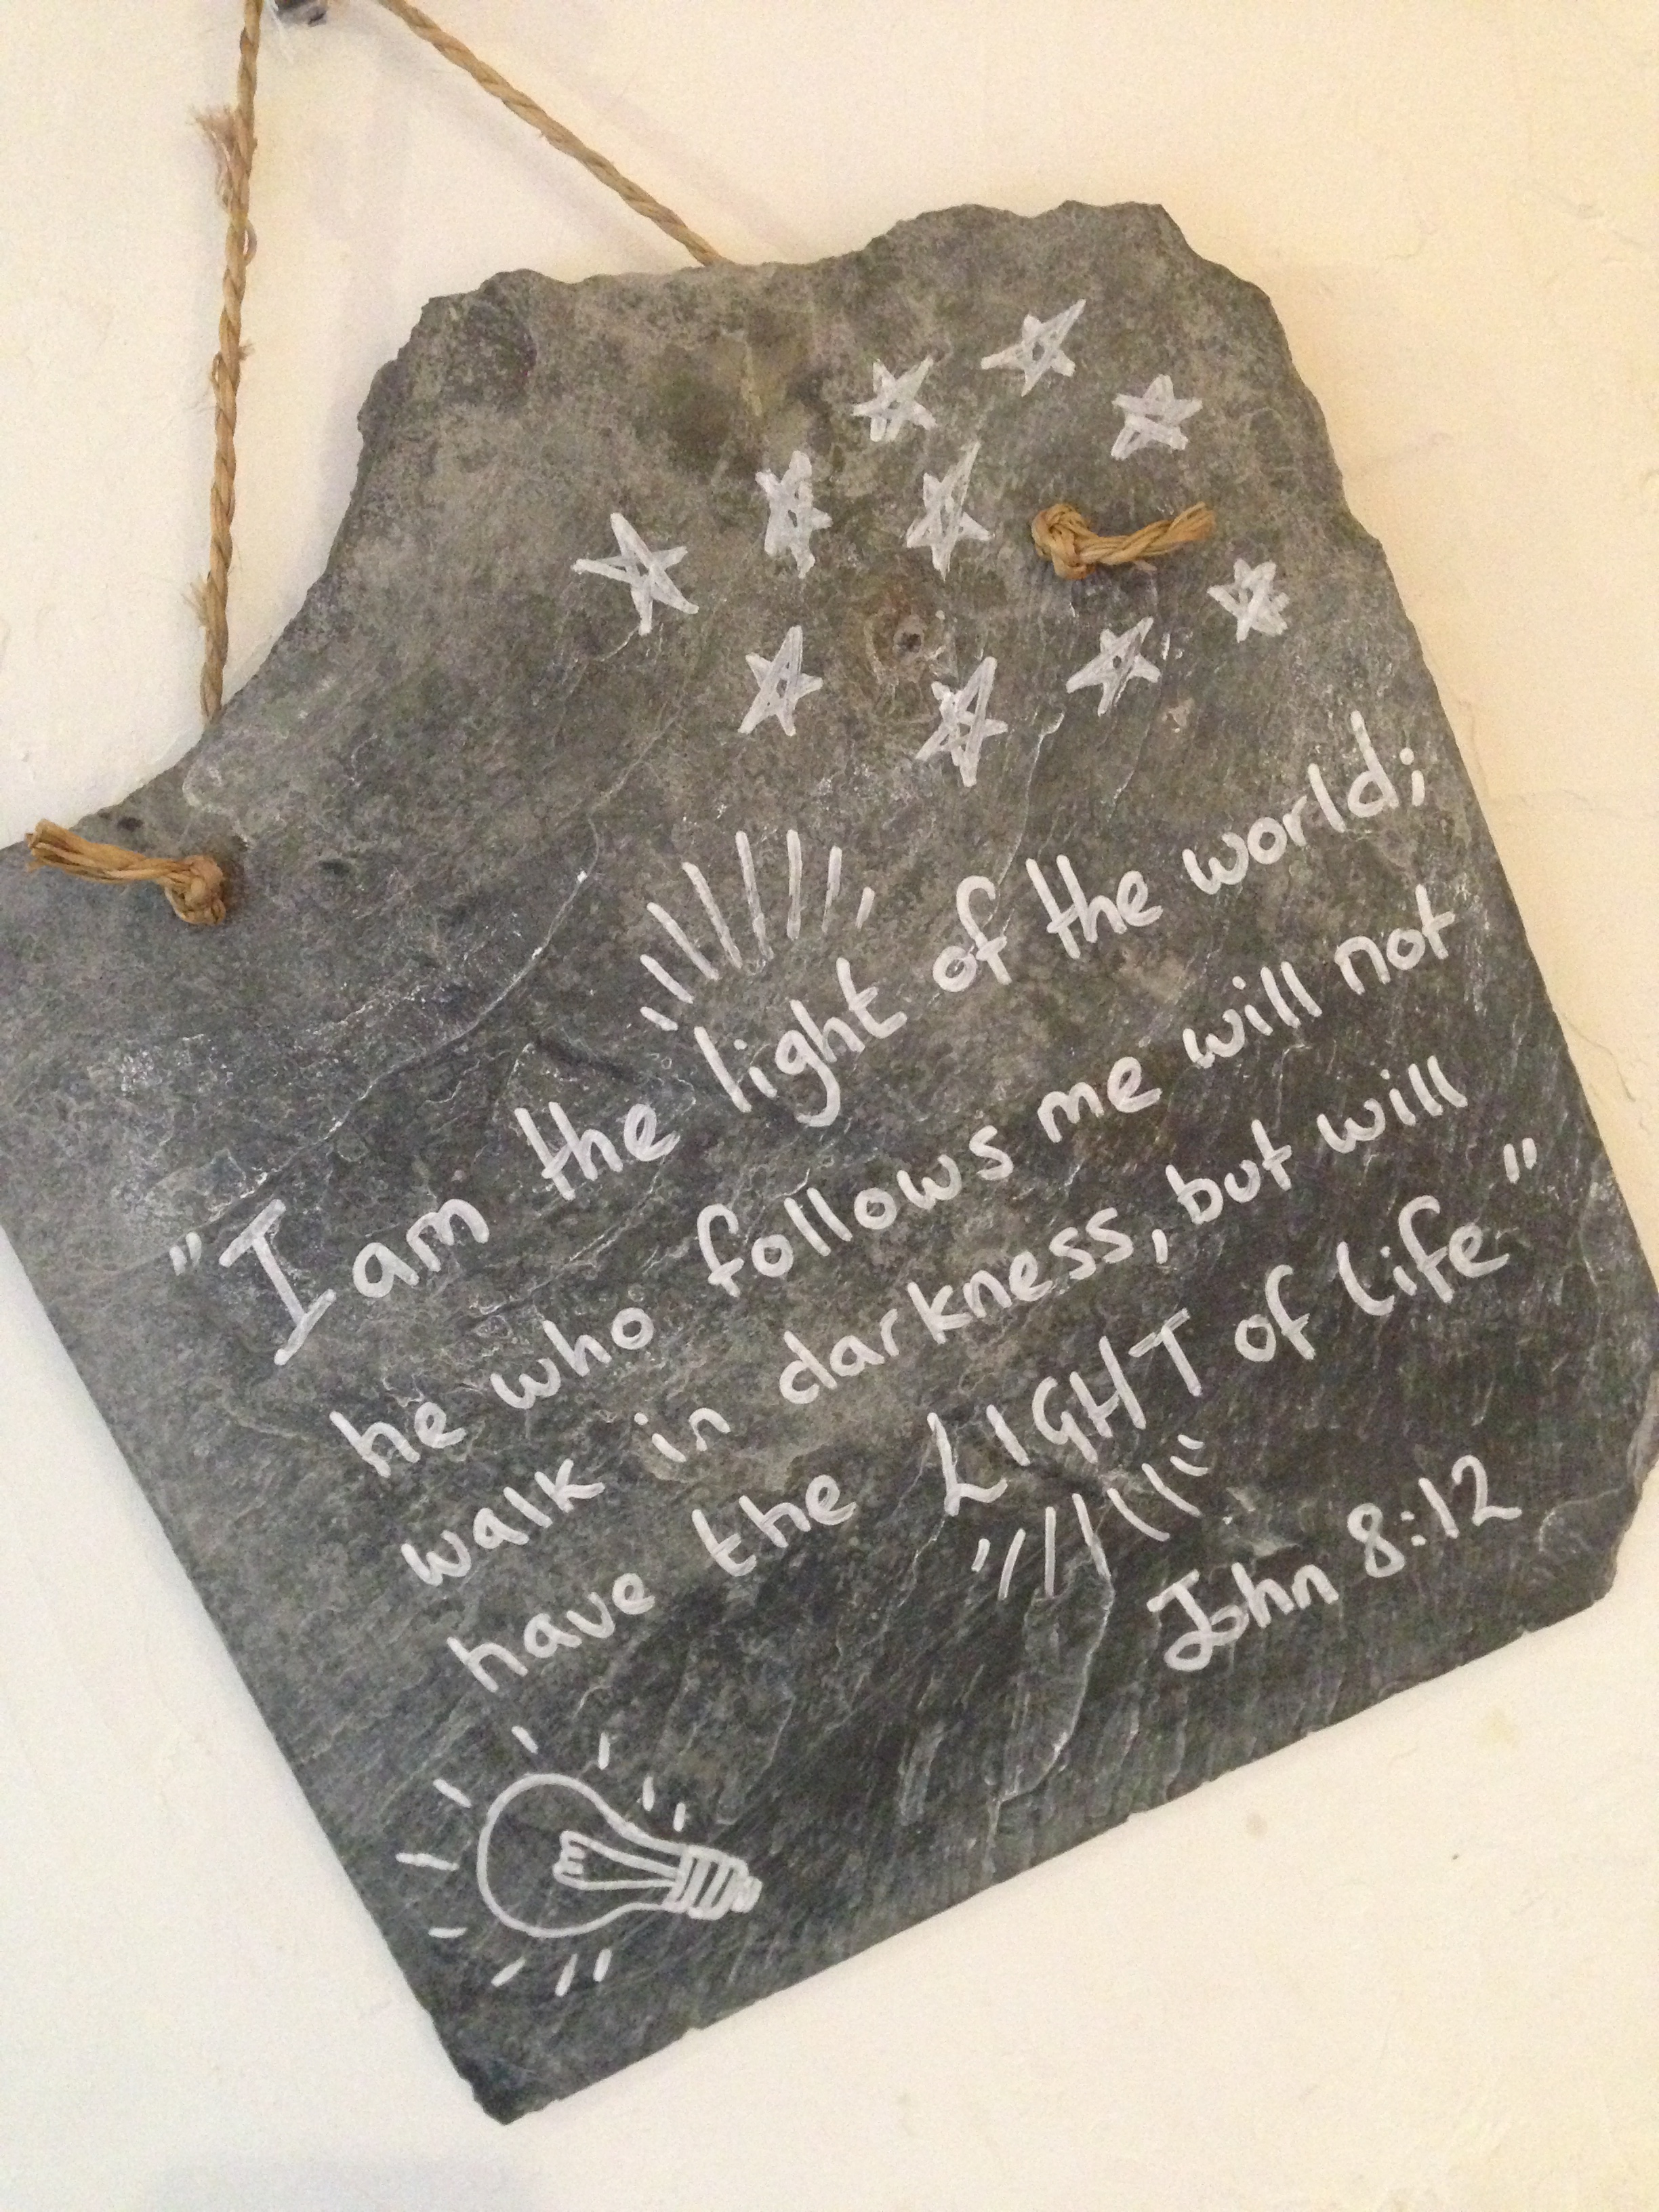 "I am the light of the world;
he who follows me will not
walk in darkness, but will
have the LIGHT of life"
John 8:12